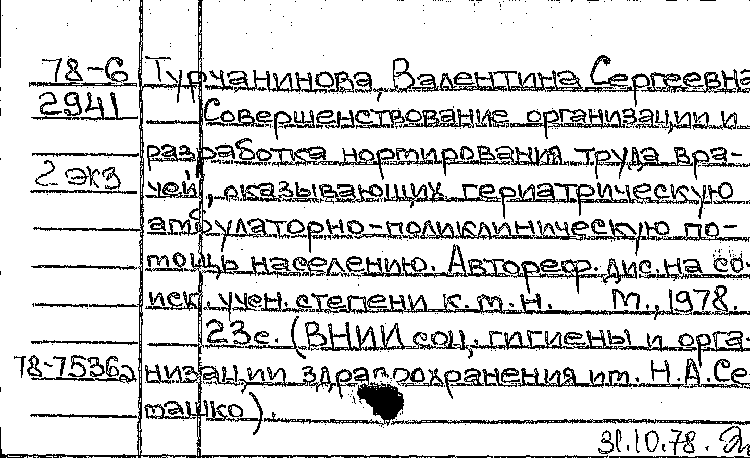 78-6 Турчанинова, Валентина Сергеевна
2941 Совершенствование организации и
разработка нормирования труда вра-
2 экз чей, оказывающих гериатрическую
амбулаторно-поликлиническую по-
мощь населению. Автореф. дис. на со-
иск. учен. степени к.м.н. М., 1978.
23с. (ВНИИ соц. гигиены и орга-
78-75362 низации здравоохранения им. Н.А.Се-
машко).
31.10.78.